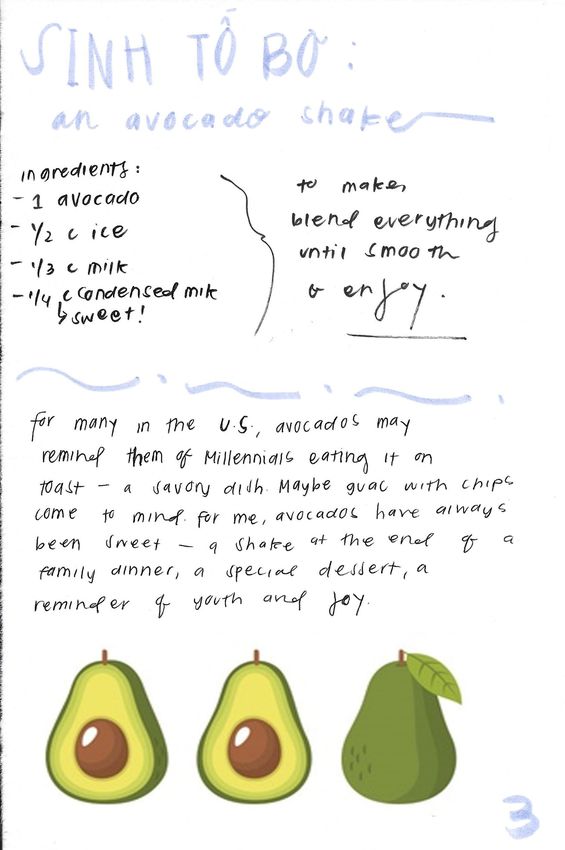 SINH TỐ BƠ:
an avocado shake
ingredients:
- 1 avocado
- 1/2 c ice
- 1/3 c milk
- 1/4 c condensed milk
↳ sweet!
to make,
blend everything
until smooth
& enjoy.
for many in the U.S., avocados may
remind them of Millennials eating it on
toast — a savory dish. Maybe guac with chips
come to mind. for me, avocados have always
been sweet — a shake at the end of a
family dinner, a special dessert, a
reminder of youth and joy.
3